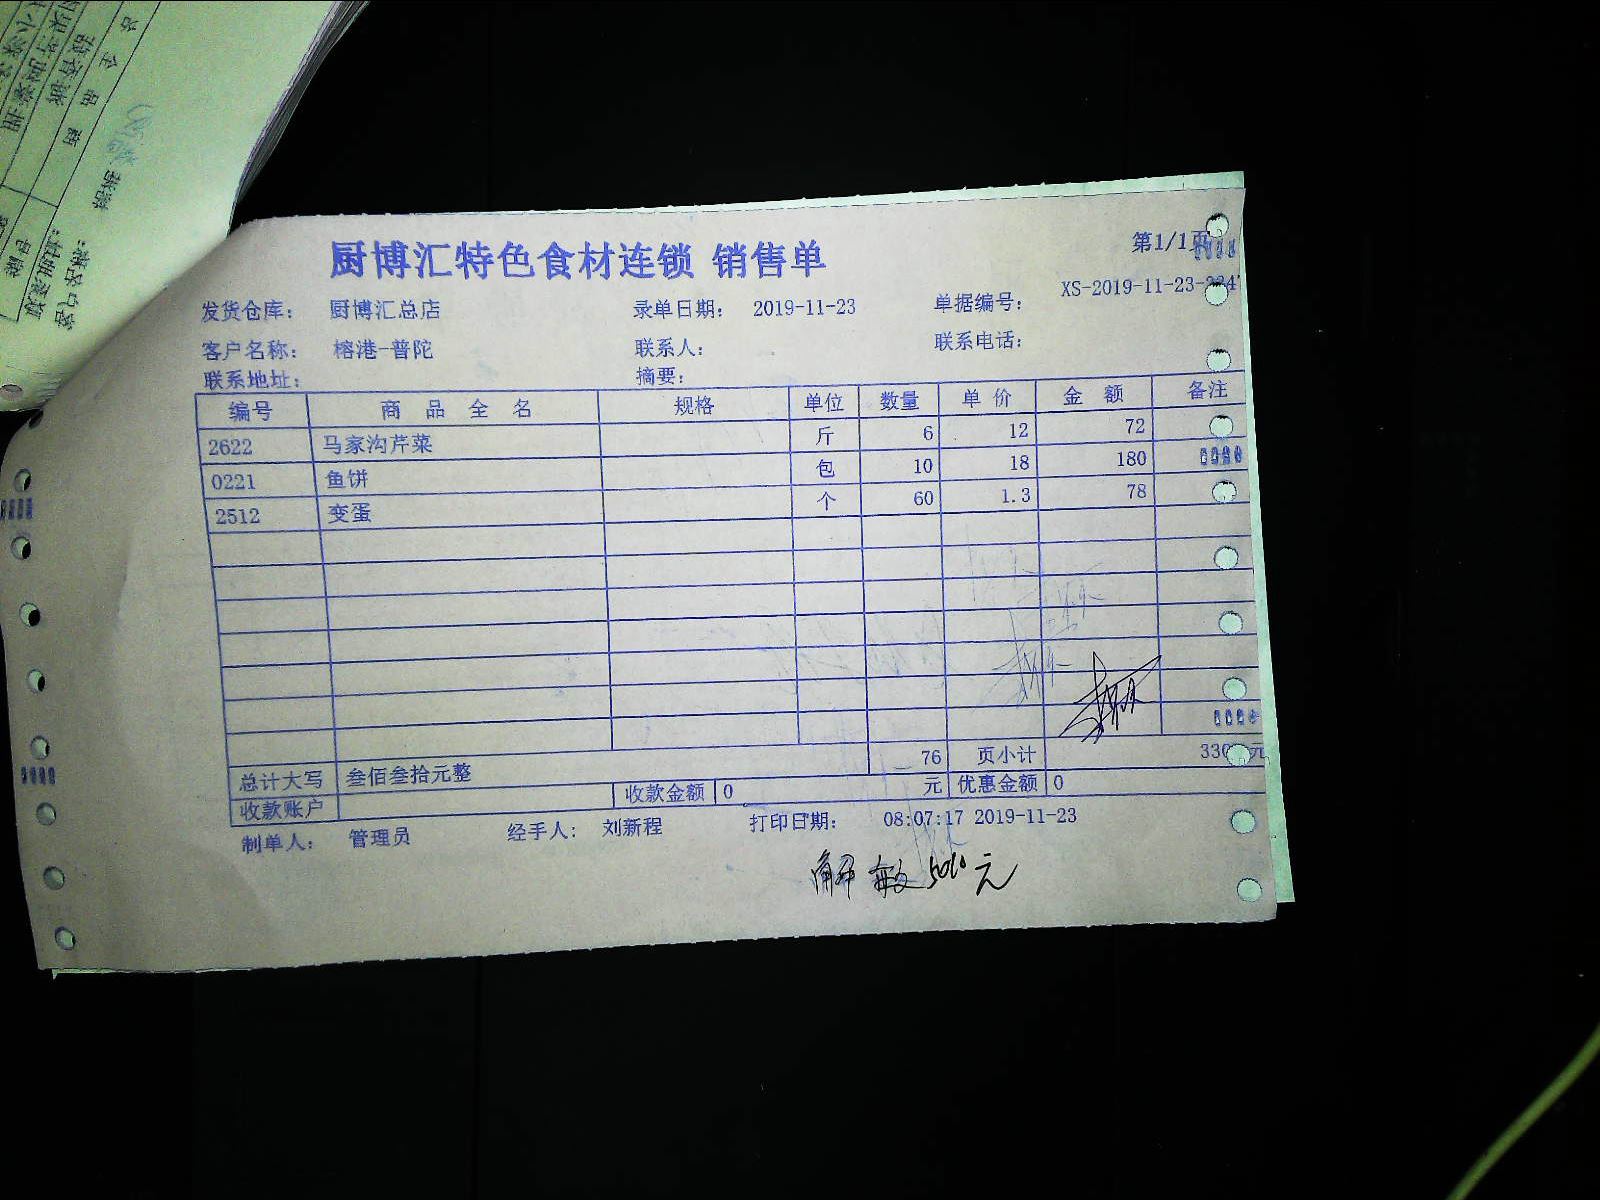 厨博汇特色食材连锁 销售单
第1/1页
发货仓库： 厨博汇总店 录单日期： 2019-11-23 单据编号： XS-2019-11-23-
客户名称： 榕港-普陀 联系人： 联系电话：
联系地址： 摘要：
编号 商品全名 规格 单位 数量 单价 金额 备注
2622 马家沟芹菜 斤 6 12 72
0221 鱼饼 包 10 18 180
2512 变蛋 个 60 1.3 78
76 页小计 330 元
总计大写 叁佰叁拾元整
收款账户 收款金额 0 元 优惠金额 0
制单人： 管理员 经手人： 刘新程 打印日期： 08:07:17 2019-11-23
元